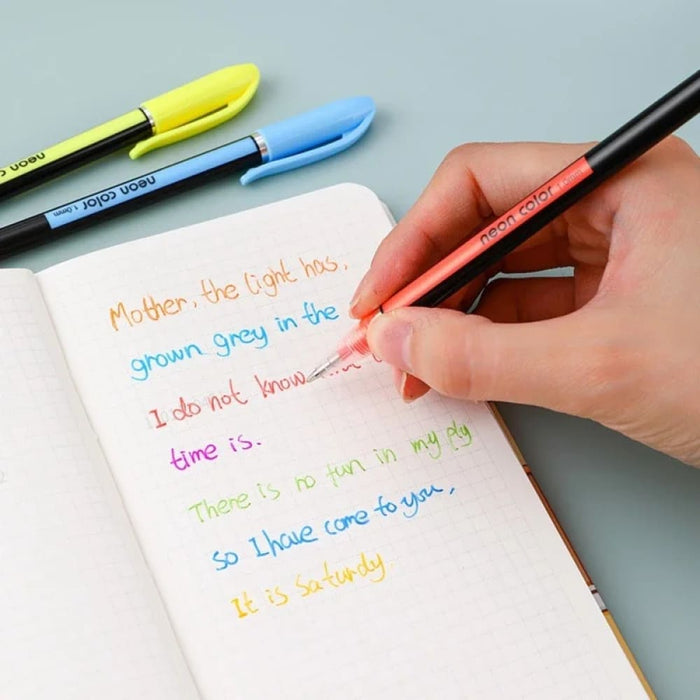 neon color
neon color 1.0mm
neon color
Mother, the light has,
grown grey in the
I do not know
time is.
There is no fun in my ply
so I have come to you,
It is Saturdy.